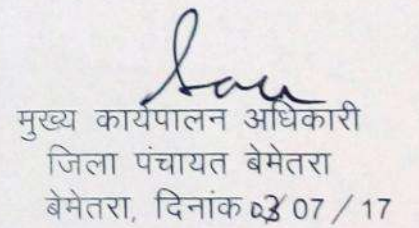 मुख्य कार्यपालन अधिकारी
जिला पंचायत बेमेतरा
बेमेतरा, दिनांक 03/07/17